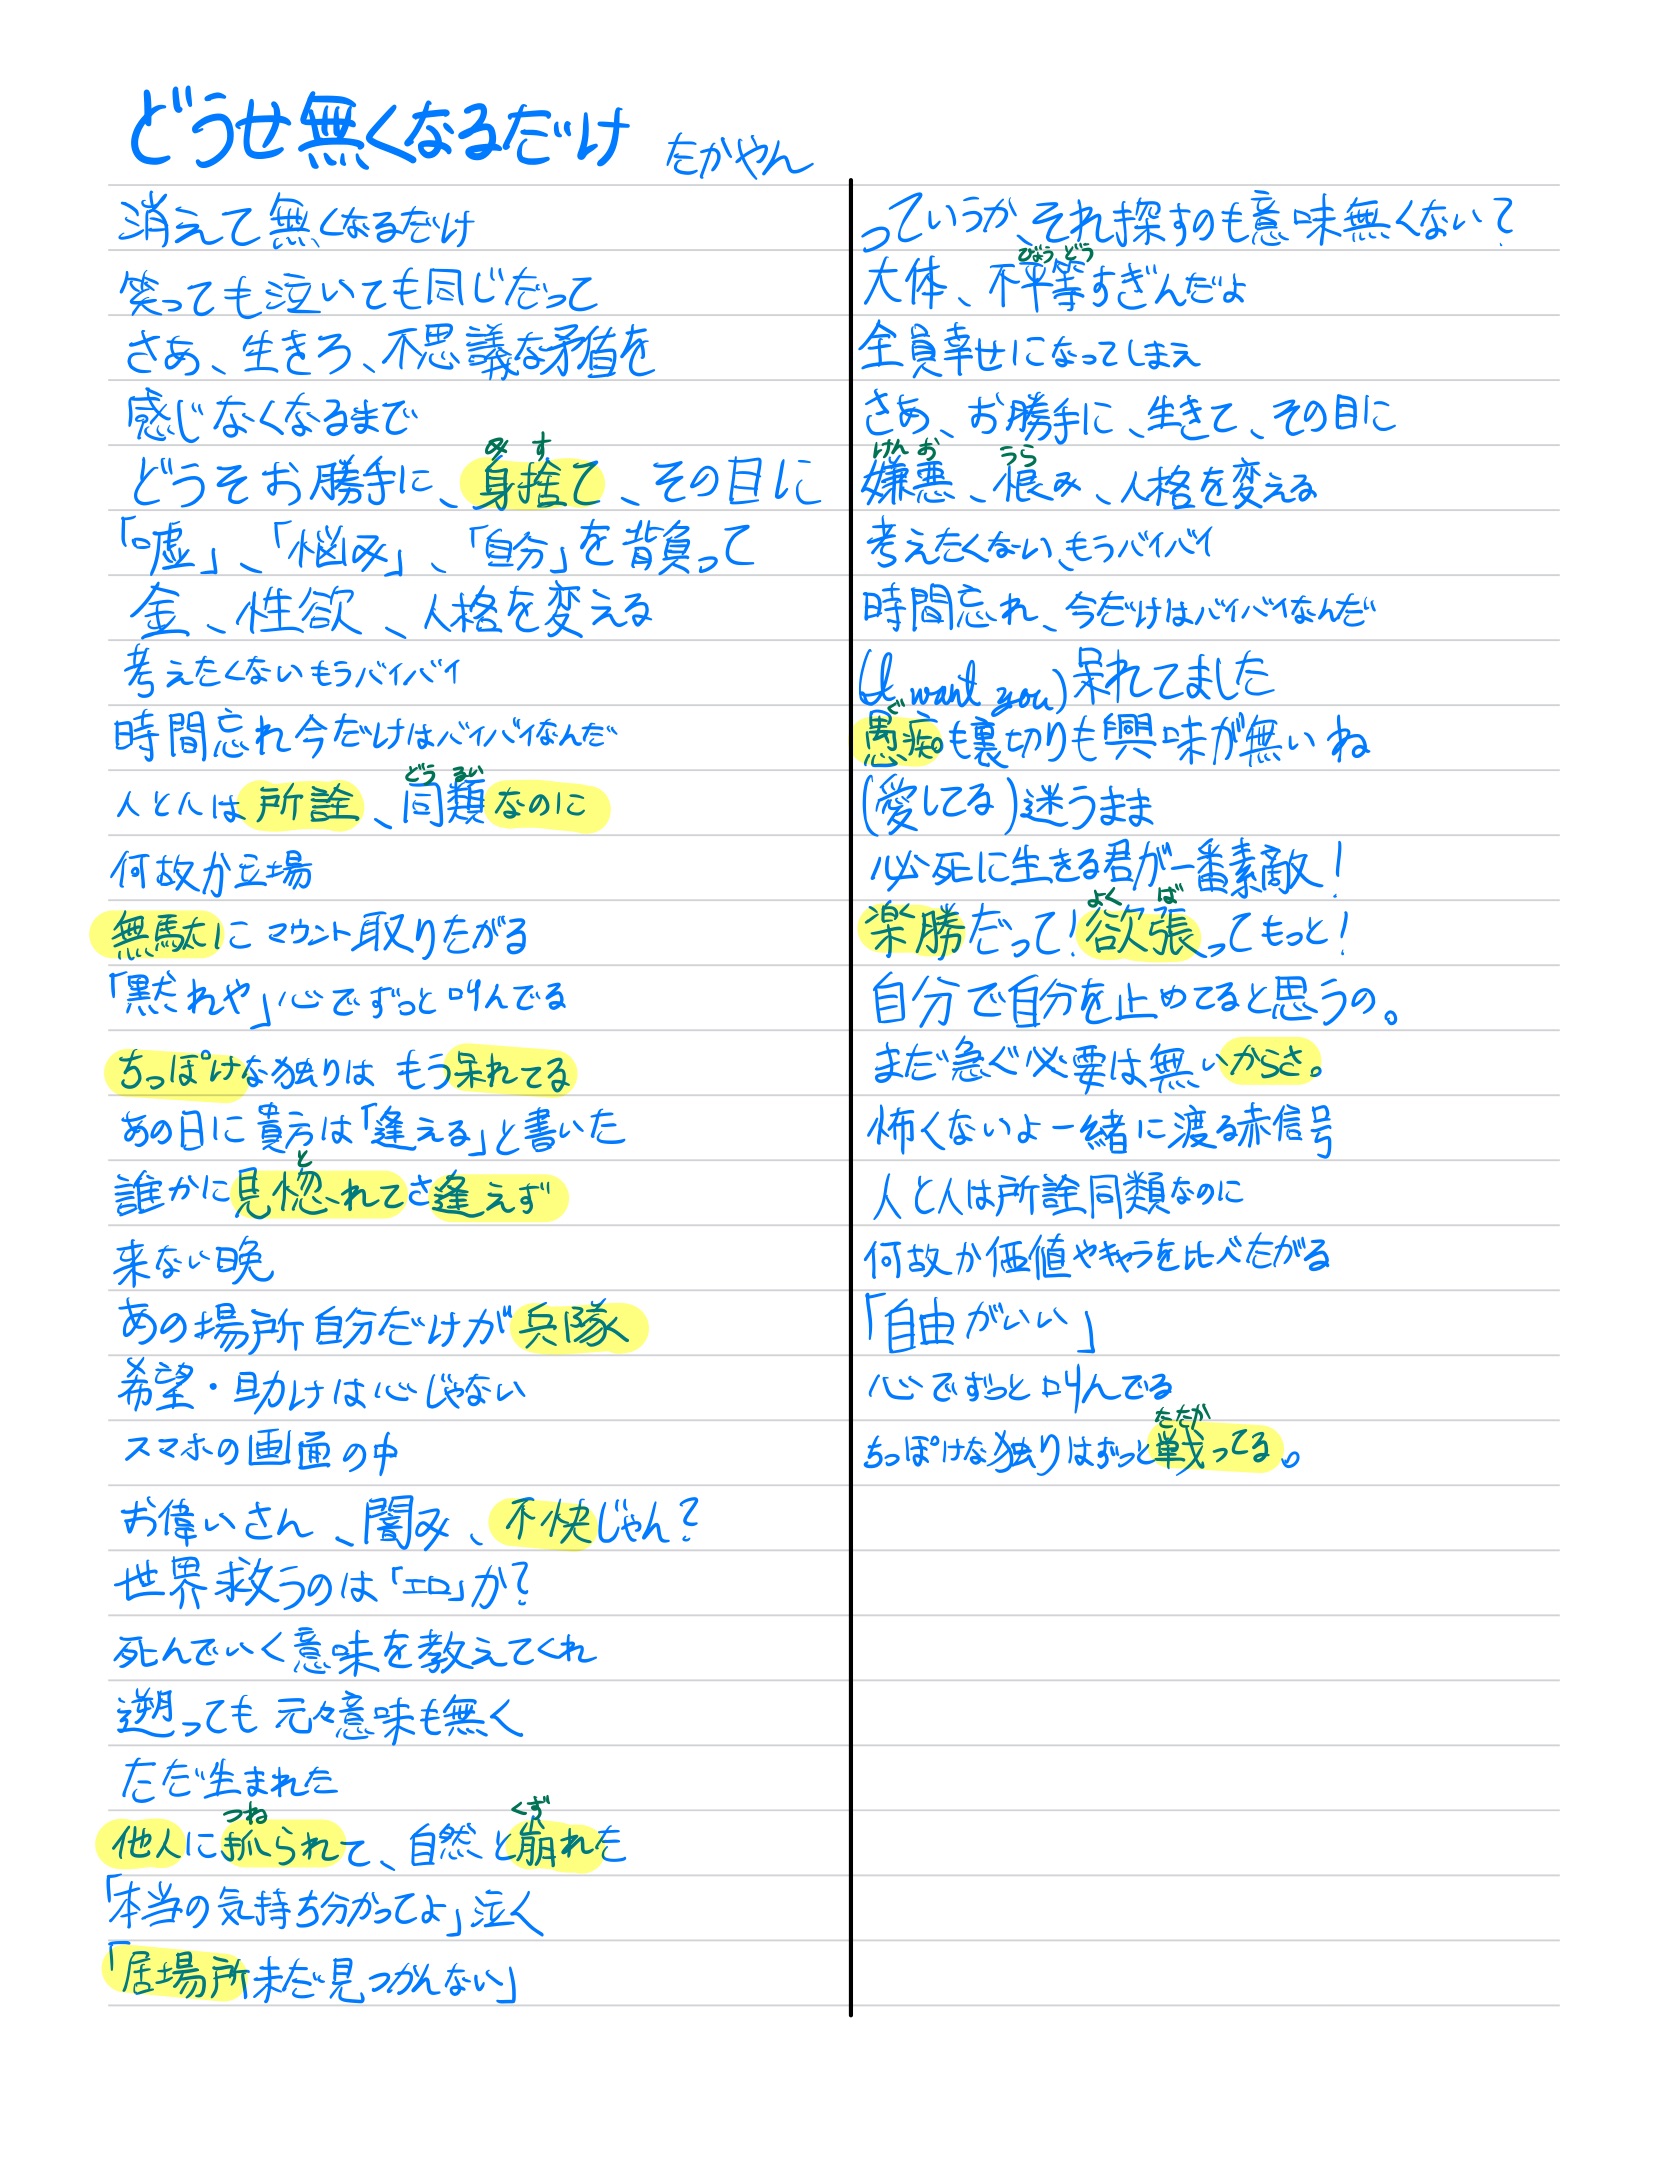 どうせ無くなるだけ たかやん
消えて無くなるだけ
笑っても泣いても同じだって
さあ、生きろ、不思議な矛盾を
感じなくなるまで
み す
どうそお勝手に、身捨て、その目に
「嘘」、「悩み」、「自分」を背負って
金、性欲、人格を変える
考えたくないもうバイバイ
時間忘れ今だけはバイバイなんだ
どう るい
人と人は所詮、同類なのに
何故か立場
無駄にマウント取りたがる
「黙れや」心でずっと叫んでる
ちっぽけな独りは もう呆れてる
あの日に貴方は「逢える」と書いた
と
誰かに見惚れてさ逢えず
来ない晩
あの場所自分だけが兵隊
希望・助けは心じゃない
スマホの画面の中
お偉いさん、闇み、不快じゃん?
世界救うのは「エロ」か?
死んでいく意味を教えてくれ
遡っても元々意味も無く
ただ生まれた
つね くず
他人に抓られて、自然と崩れた
「本当の気持ち分かってよ」泣く
「居場所未だ見つかんない」
っていうか、それ探すのも意味無くない?
びょう どう
大体、不平等すぎんだよ
全員幸せになってしまえ
さあ、お勝手に、生きて、その目に
けん お うら
嫌悪、恨み、人格を変える
考えたくない、もうバイバイ
時間忘れ、今だけはバイバイなんだ
(I want you)呆れてました
ぐ
愚痴も裏切りも興味が無いね
(愛してる)迷うまま
必死に生きる君が一番素敵!
よく ば
楽勝だって!欲張ってもっと!
自分で自分を止めてると思うの。
まだ急ぐ必要は無いからさ。
怖くないよ一緒に渡る赤信号
人と人は所詮同類なのに
何故か価値やキャラを比べたがる
「自由がいい」
心でずっと叫んでる
たたか
ちっぽけな独りはずっと戦ってる。